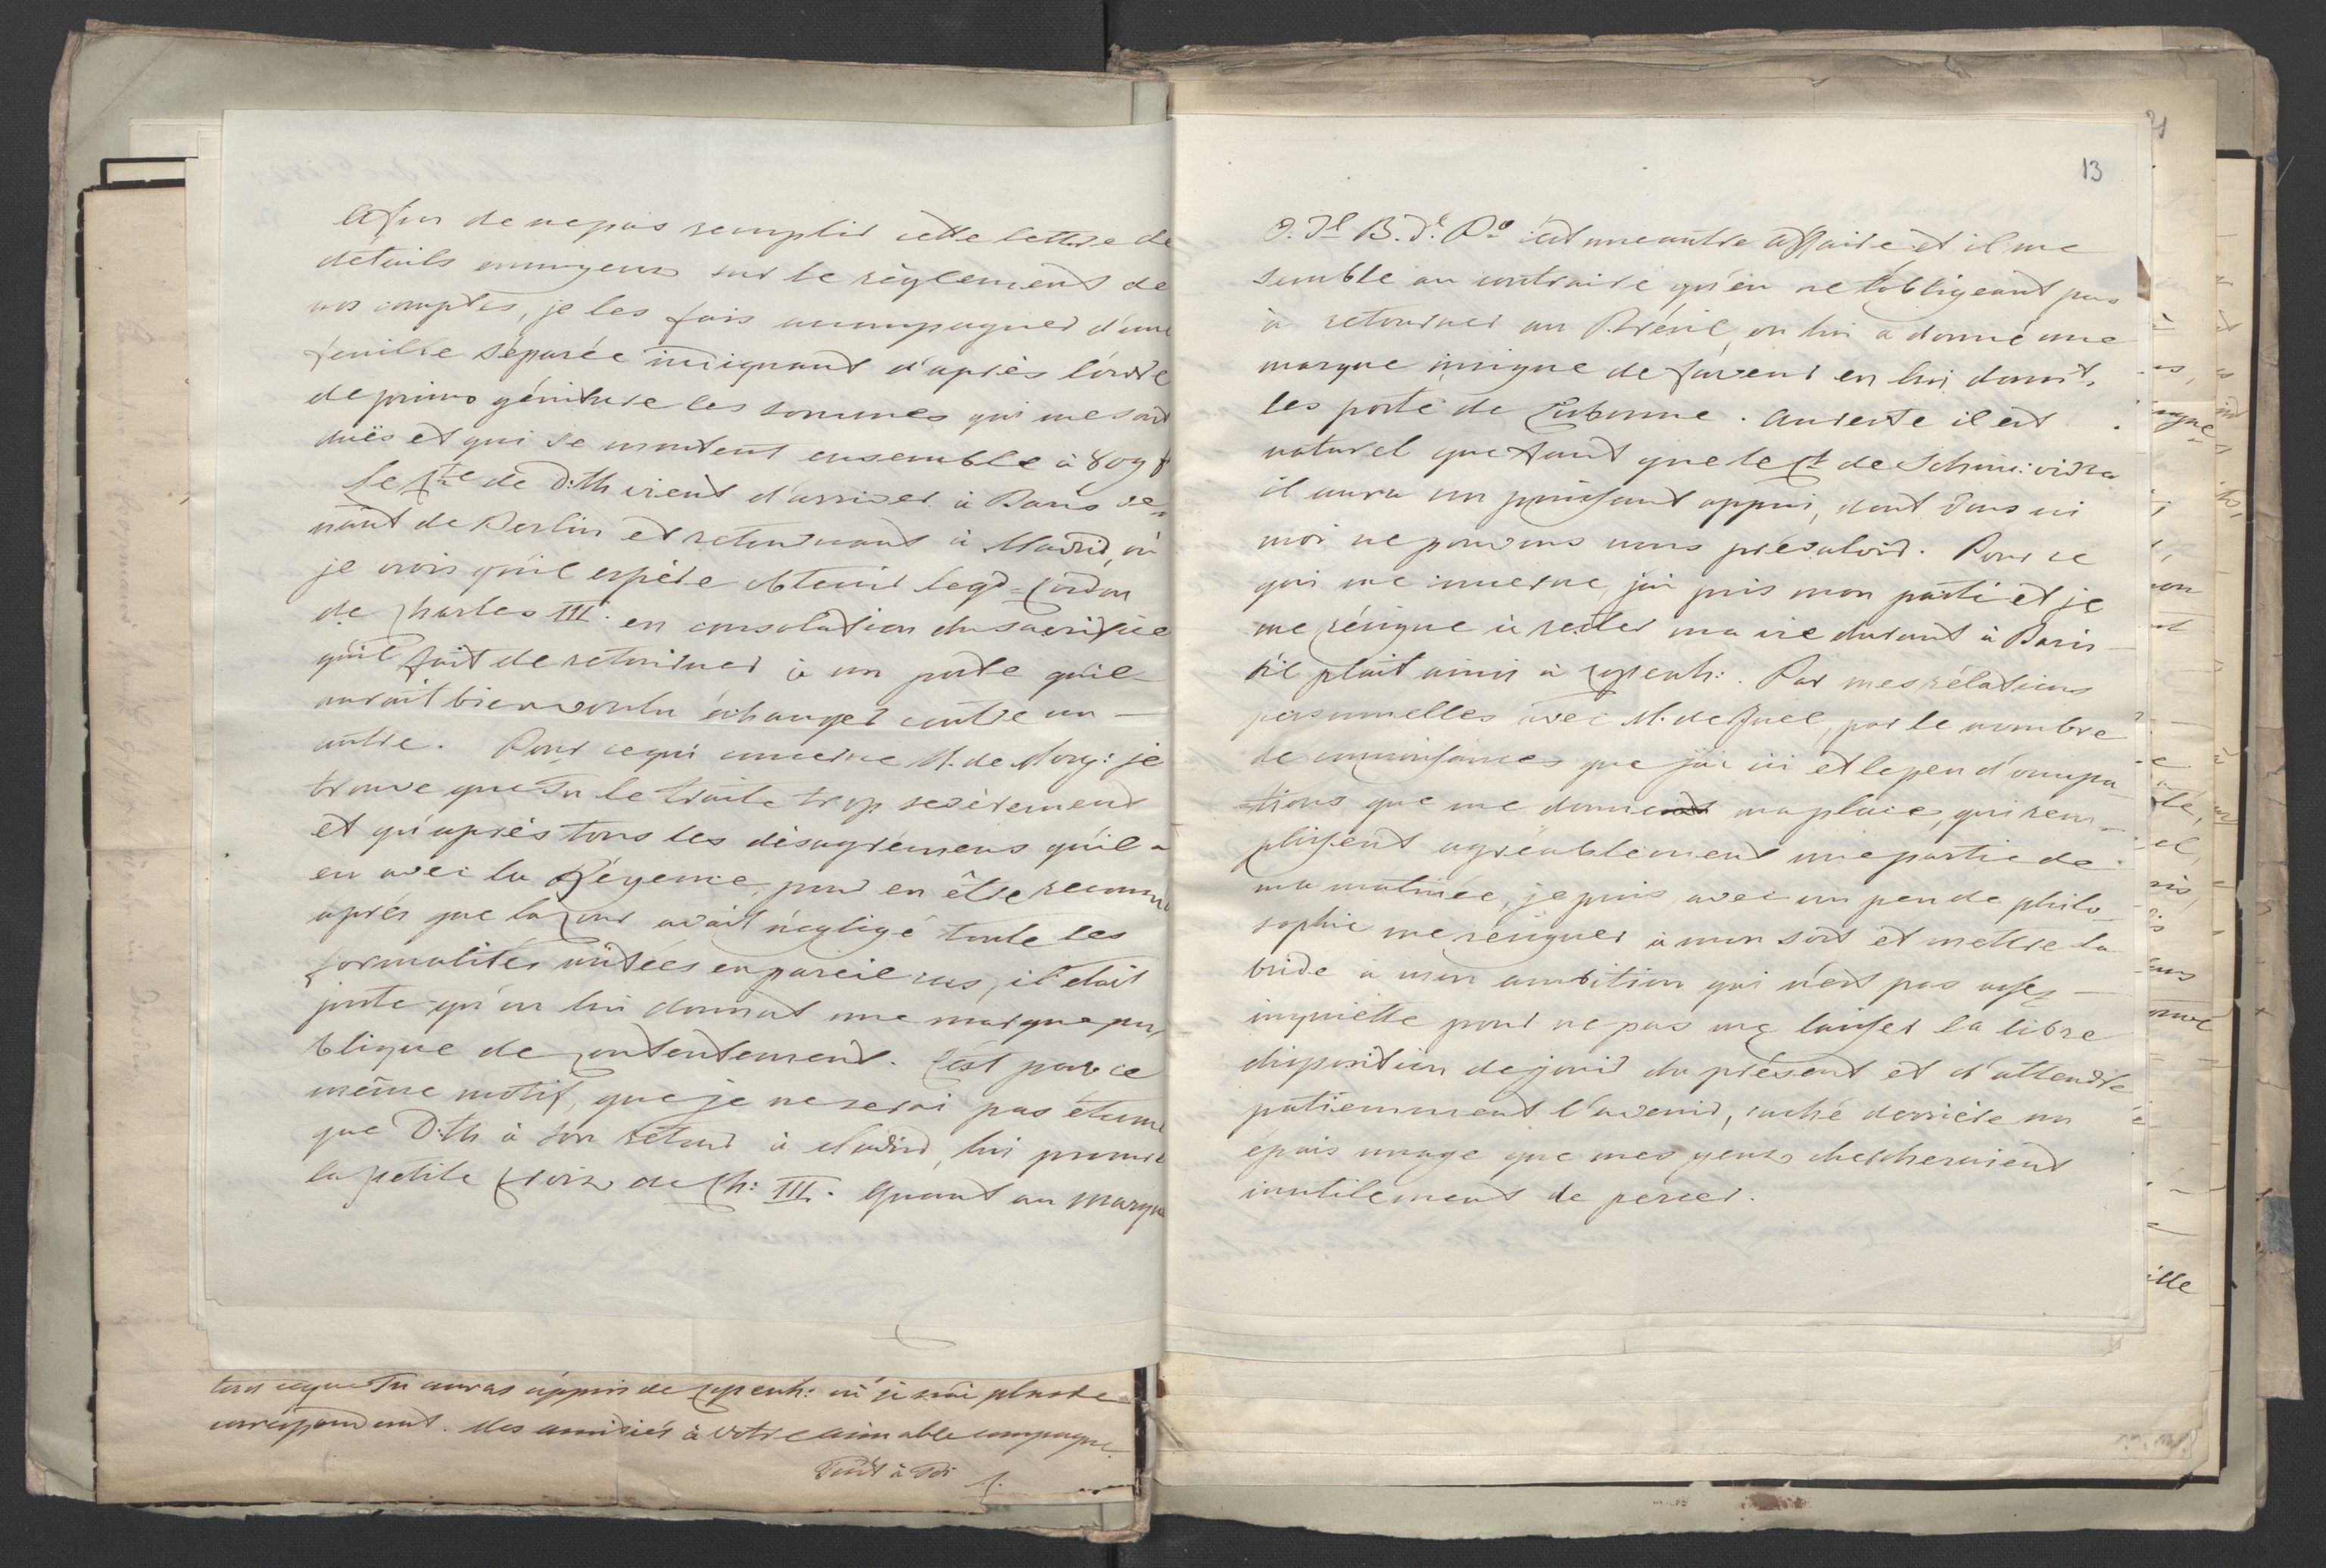 Afin de ne pas remplir cette lettre de
details ennuyeux sur le règlement de
nos comptes, je les fais accompagner d'une
feuille séparée indiquant d'après l'ordre
de primo géniture les sommes qui me sont
duës et qui se montent ensemble à 809 f
Le Cte de D:th vient d'arriver à Paris ve=
nant de Berlin et retournant à Madrid, où
je crois qu'il espère obtenir le gd=Cordon
de Charles III. en consolation du sacrifice
qu'il fait de retourner à un poste qu'il
aurait bien voulu échanger contre un
autre. Pour ce qui concerne M. de Borg: je
trouve que Tu le traite trop sevèrement
et qu'après tous les désagrémens qu'il a
eu avec la Régence, pour en être reconnu
après que la Cour avait négligé toute les
formalités usitées en pareil cas, il était
juste qu'on lui donnat une marque pu,
blique de Contentement. C'est par ce
même motif, que je ne serai pas étonné
que D:th à son retour à Madrid, lui procure
la petite Croix de Ch: III. Quant au
tout ce que Tu auras appris de Copenh: où je n'ai plus de
correspondant. Mes amitiés à votre aimable compagne
Tout à Toi
13
O. Jl B. c'est une autre affaire et il me
semble au contraire qu'en ne l'obligeant pas
à retourner au Brésil, on lui a donné une
marque insigne de faveur en lui donnt.
les poste de Lisbonne. Au reste il est
naturel que tant que le Ct de Schim: vivra
il aura un puissant appui, dont Vous ni
moi ne pouvons nous prévaloir. Pour ce
qui me concerne, j'ai pris mon parti et je
me résigne à rester ma vie durant à Paris
s'il plait ainsi à Copenh:. Par mes rélations
personnelles avec M. de Juel, par le nombre
de connoissances que j'ai ici et le peu d'occupa
tions que me donne ma place, qui rem=
plissent agréablement une partie de
ma matinée, je puis avec un peu de philo
sophie me résigner à mon sort et mettre la
bride à mon ambition qui n'est pas assez
inquiette pour ne pas me laisser la libre
disposition de jouir du présent et d'attendre
patiemment l'avenir, caché derrière un
épais nuage que mes yeux chercheraient
inutilement de percer.